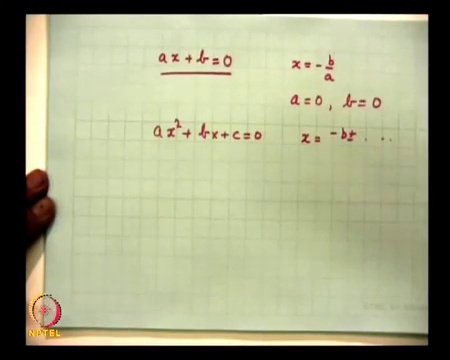 ax + b = 0    x = - b/a
a = 0, b = 0
ax² + bx + c = 0    x = -b ± ...
NPTEL